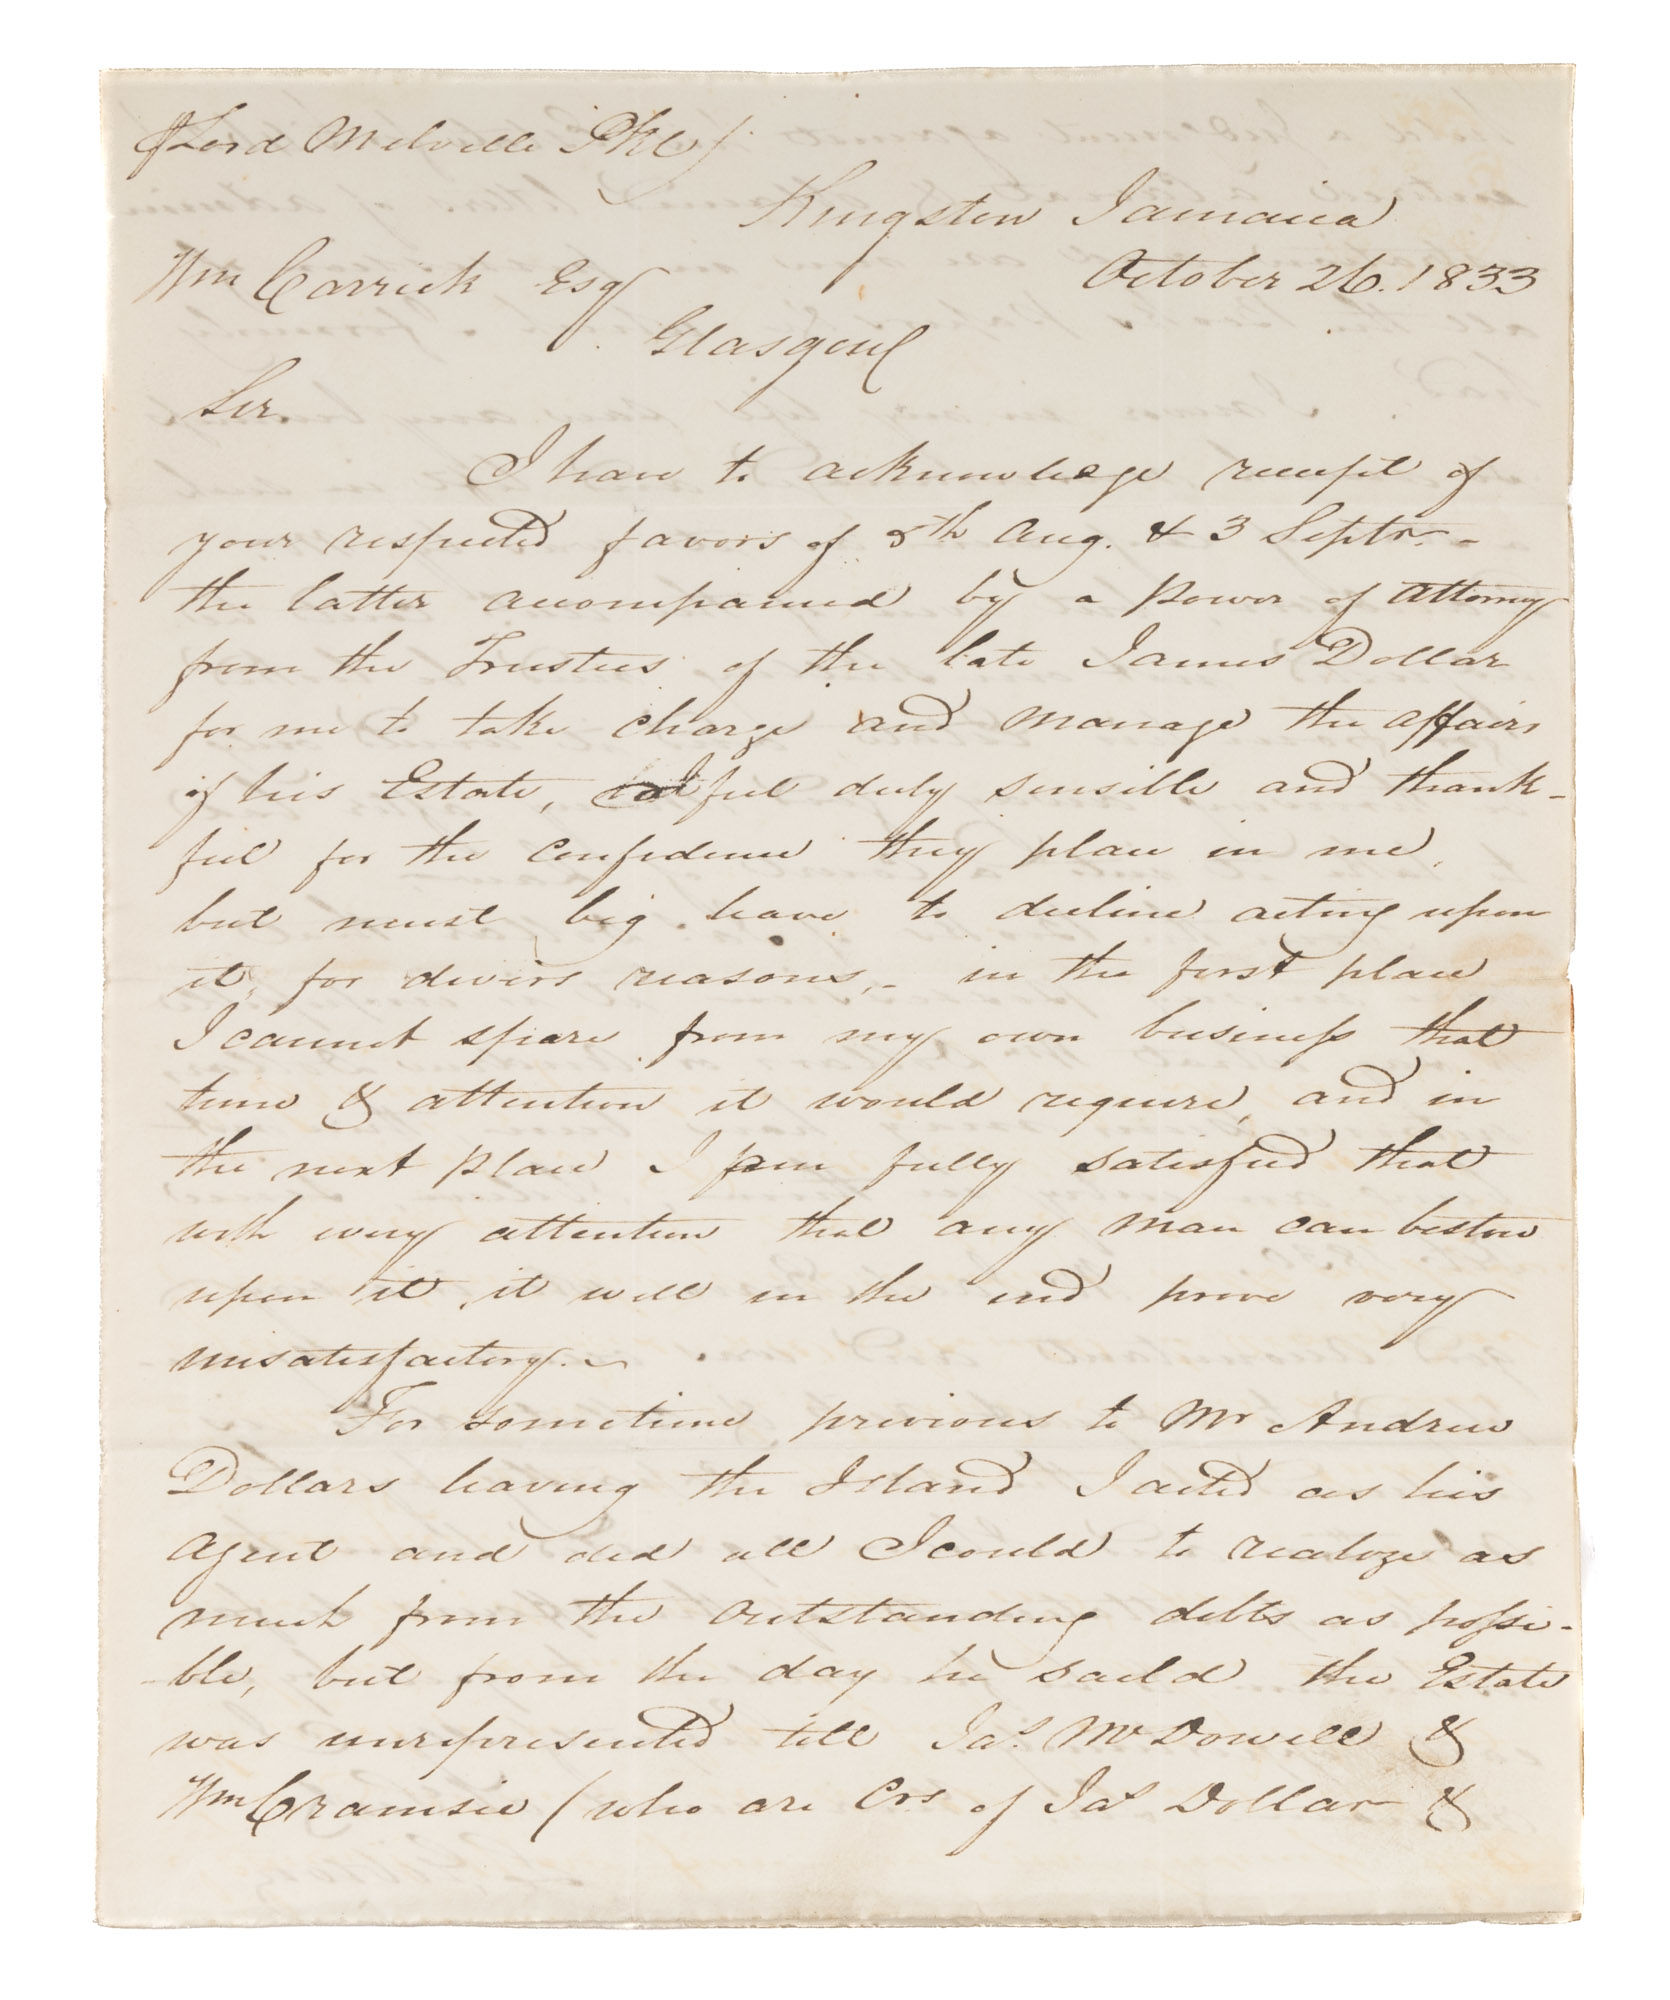 Lord Melville Pkt
Kingston Jamaica
Wm Carrick Esq October 26. 1833
Glasgow
Sir.
I have to acknowledge receipt of
your respected favors of 8th Aug. & 3 Septr. -
the latter accompanied by a power of Attorney
from the Trustees of the late James Dollar
for me to take charge and manage the affairs
of his Estate, I feel duly sensible and thank-
ful for the confidence they place in me,
but must beg leave to decline acting upon
it, for divers reasons, - in the first place
I cannot spare from my own business that
time & attention it would require, and in
the next place I am fully satisfied that
with every attention that any man can bestow
upon it, it will in the end prove very
unsatisfactory. -
For sometime previous to Mr Andrew
Dollars leaving the Island I acted as his
Agent and did all I could to realize as
much from the outstanding debts as possi-
-ble, but from the day he saild the Estate
was unrepresented till Jas. McDowell &
Wm Cramsie (who are Crs of Jas Dollar &